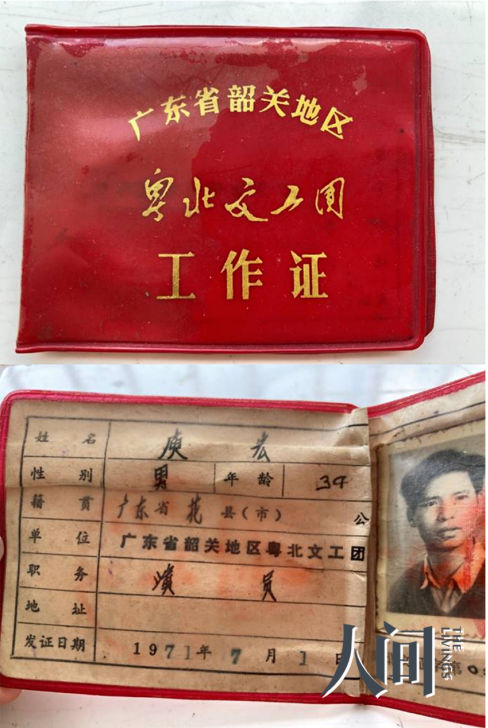 广东省韶关地区
粤北文工团
工作证
姓名 庾宏
性别 男 年龄 34
籍贯 广东省花县(市) 公
单位 广东省韶关地区粤北文工团
职务 演员
地址
发证日期 1971年7月1日
人间
THE LIVINGS